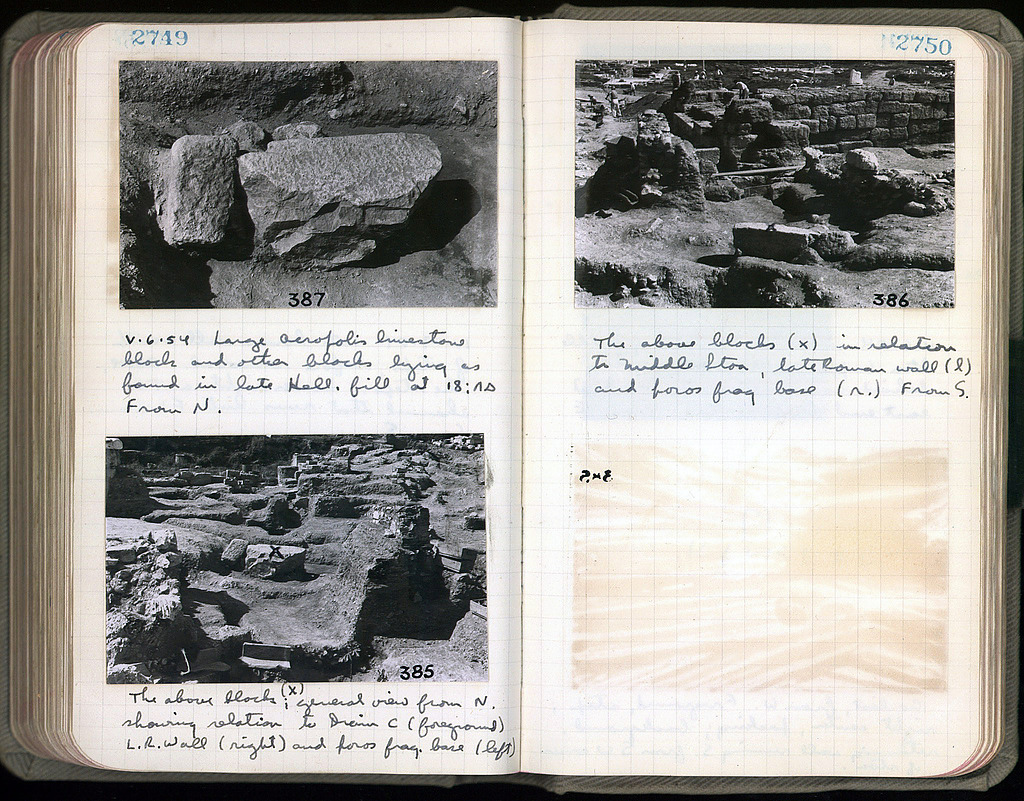 2749
387
V.6.54 Large acropolis limestone
block and other blocks lying as
found in late Hell. fill at 18:ΛΔ
From N.
385
The above blocks (x); general view from N.
showing relation to Drain C (foreground)
L.R. Wall (right) and poros frag. base (left)
2750
386
The above blocks (x) in relation
to Middle Stoa, late Roman wall (l)
and poros frag base (r.) From S.
385